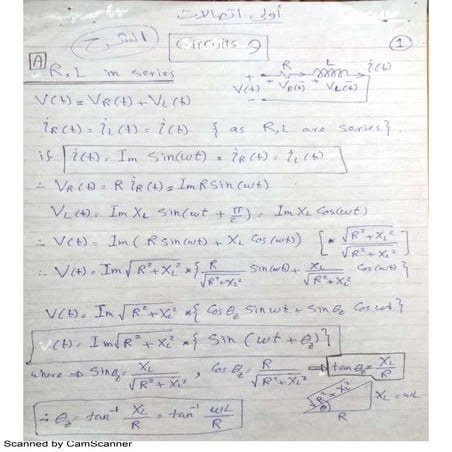 أولى اتصالات
الشرح
Circuits 9
1
A R, L in series
R L i(t)
+ V(t) - + VR(t) - + VL(t) -
V(t) = VR(t) + VL(t)
iR(t) = iL(t) = i(t) { as R,L are series}
if i(t) = Im Sin(ωt) = iR(t) = iL(t)
∴ VR(t) = R iR(t) = Im R Sin(ωt)
VL(t) = Im XL Sin(ωt + π/2) = Im XL Cos(ωt)
∴ V(t) = Im ( R Sin(ωt) + XL Cos(ωt)) [* √R²+XL² / √R²+XL²]
∴ V(t) = Im √R²+XL² *{ R/√R²+XL² Sin(ωt) + XL/√R²+XL² Cos(ωt) }
V(t) = Im √R²+XL² *{ Cos θz Sin ωt + Sin θz Cos ωt }
V(t) = Im √R²+XL² *{ Sin (ωt + θz) }
where ⇒ Sin θz = XL/√R²+XL² , Cos θz = R/√R²+XL² ⇒ tan θz = XL/R
∴ θz = tan⁻¹ XL/R = tan⁻¹ ωL/R
√R²+XL² XL = ωL
θz
R
Scanned by CamScanner